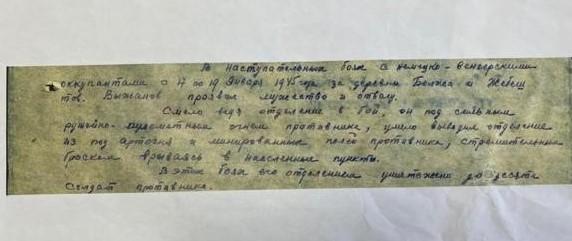 В наступательных боях с немецко-венгерскими
оккупантами с 17 по 19 Января 1945 года за деревни и
тов. Выжанов проявил мужество и отвагу.
Смело ведя отделение в бой, он под сильным
ружейно-пулеметным огнем противника, умело выводил отделение
из под артогня и минированных полей противника, стремительным
броском врываясь в населенные пункты.
В этих боях его отделением уничтожено до десяти
солдат противника.